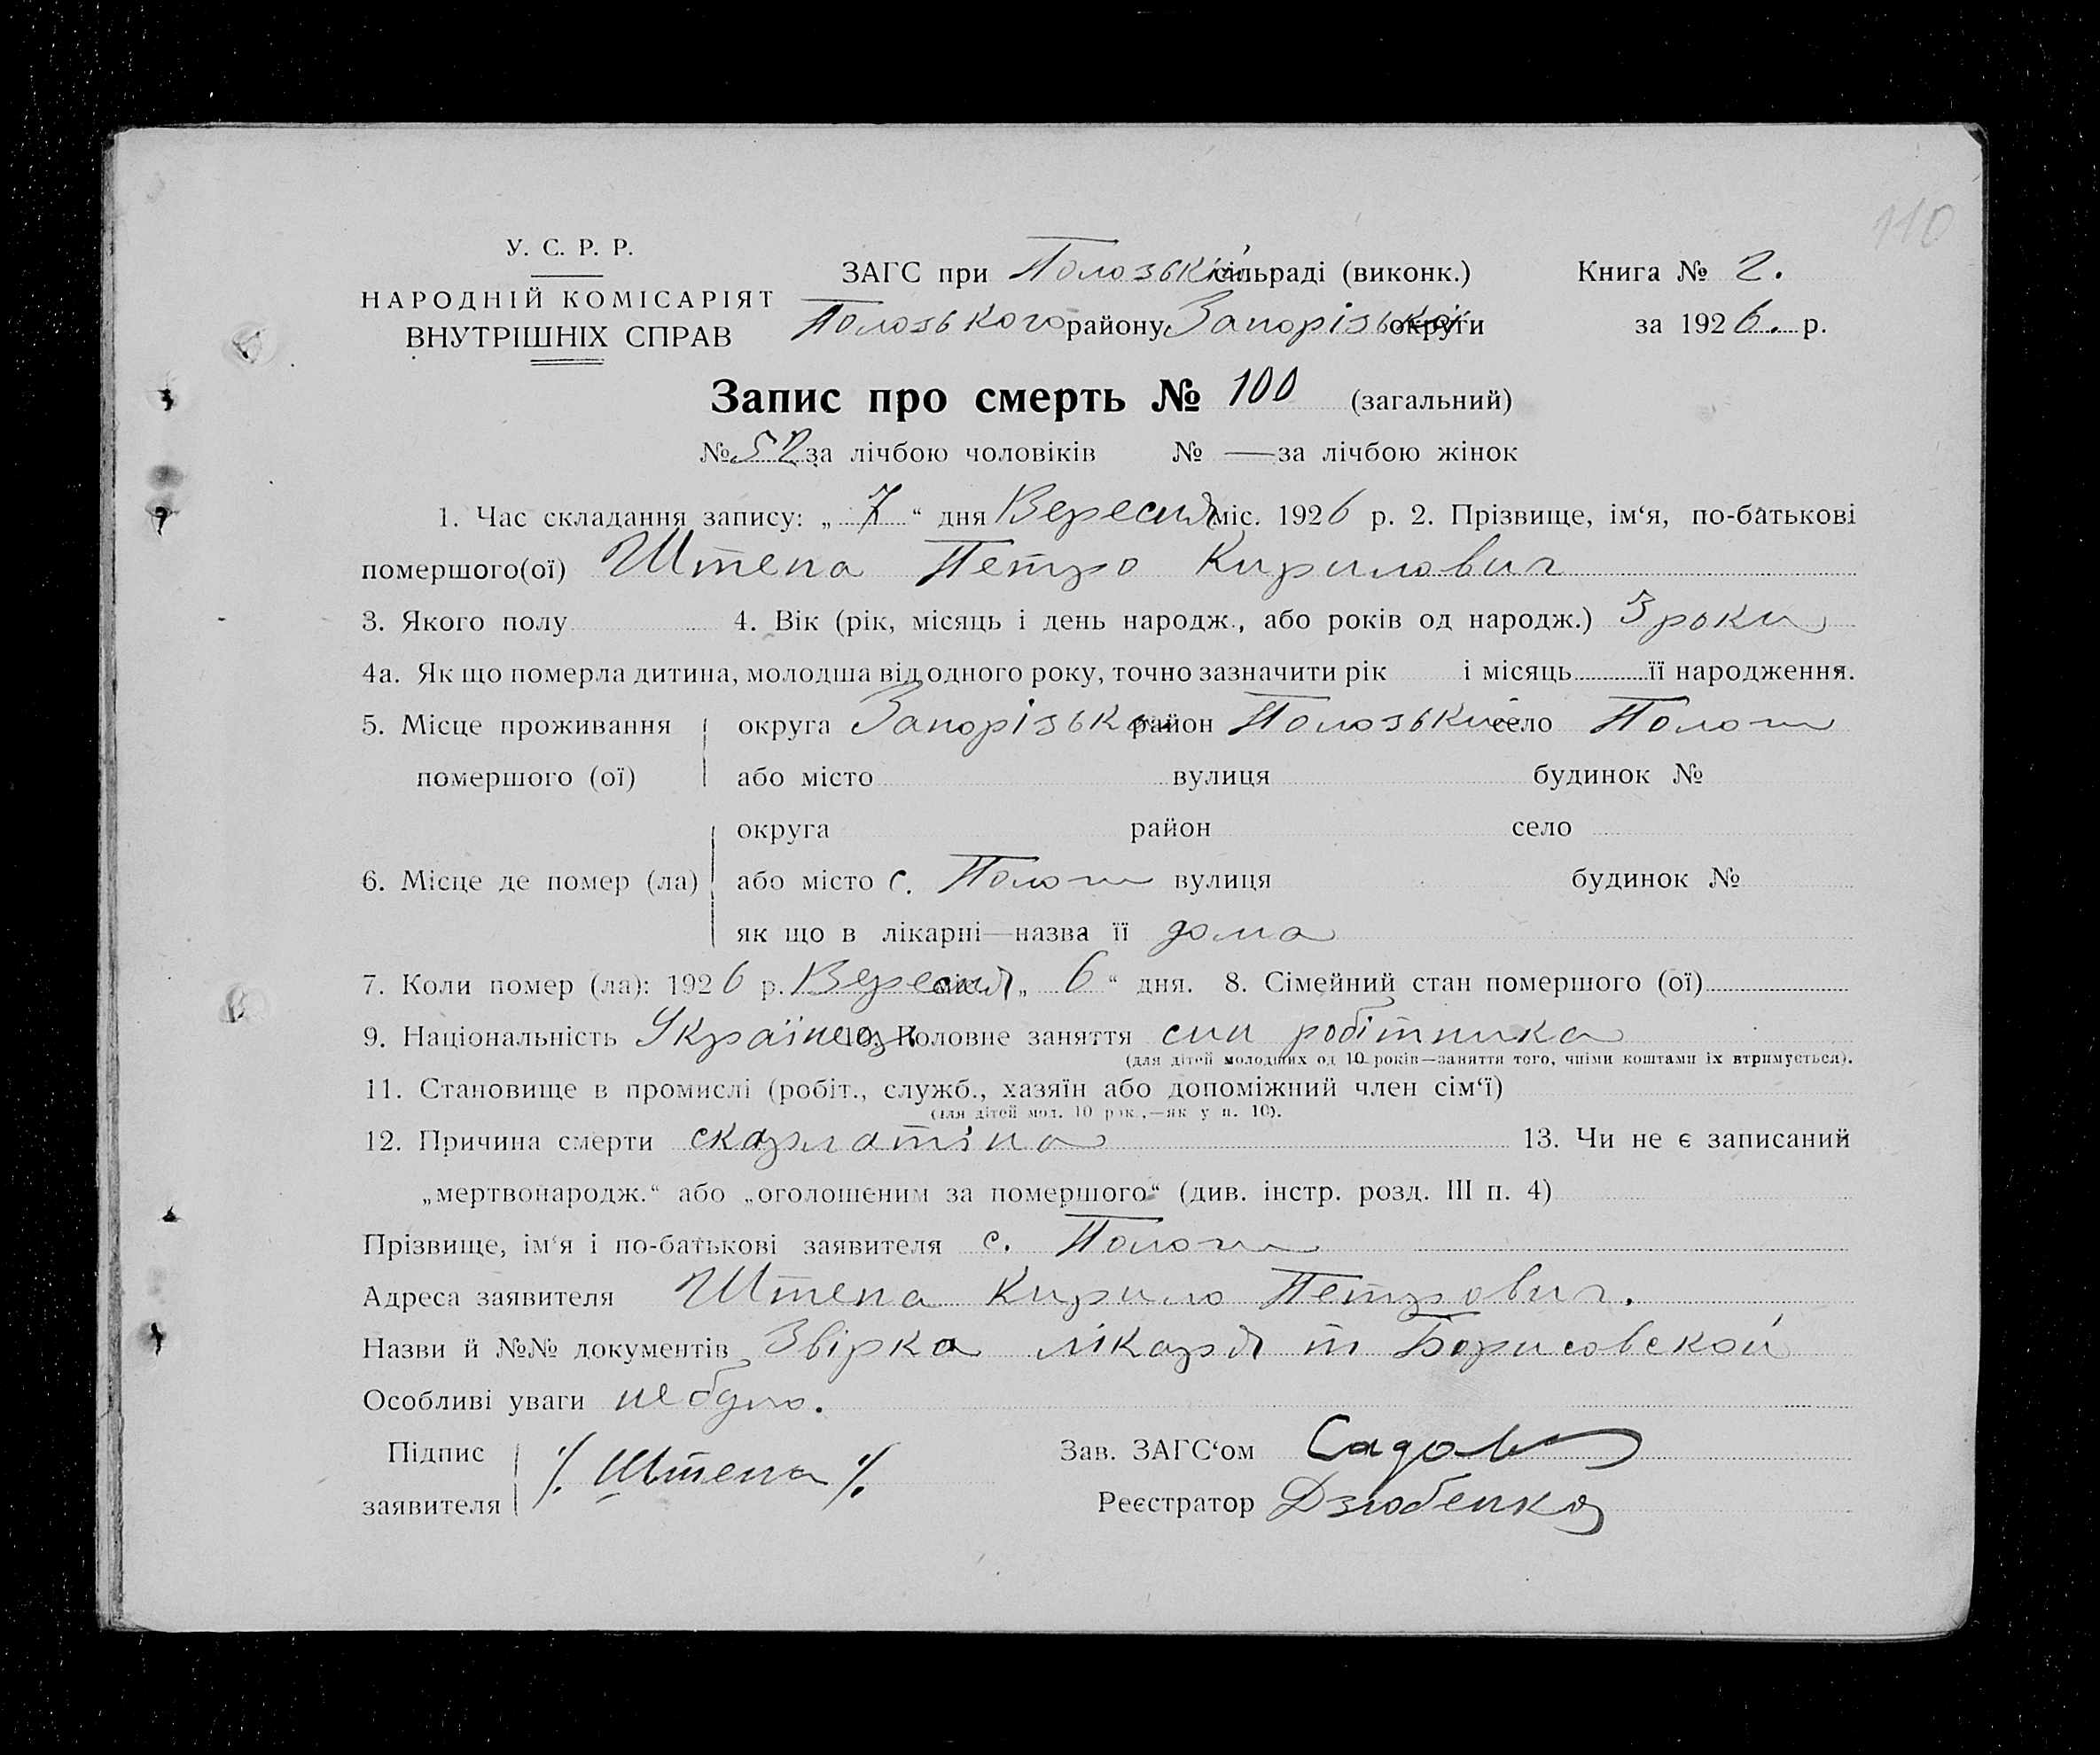 110
У. С. Р. Р.
НАРОДНІЙ КОМІСАРІЯТ
ВНУТРІШНІХ СПРАВ
ЗАГС при Полозькій сільраді (виконк.)
Полозького району Запорізької округи
Книга № 2.
за 1926. р.
Запис про смерть № 100 (загальний)
№ 52 за лічбою чоловіків № — за лічбою жінок
1. Час складання запису: „ 7 “ дня Вересня міс. 1926 р. 2. Прізвище, ім‘я, по-батькові
помершого(ої) Штепа Петро Кирилович
3. Якого полу 4. Вік (рік, місяць і день народж., або років од народж.) 3 роки
4а. Як що померла дитина, молодша від одного року, точно зазначити рік і місяць її народження.
5. Місце проживання помершого (ої) округа Запорізька район Полозький село Пологи
або місто вулиця будинок №
округа район село
6. Місце де помер (ла) або місто с. Пологи вулиця будинок №
як що в лікарні—назва її дома
7. Коли помер (ла): 1926 р. Вересня „ 6 “ дня. 8. Сімейний стан помершого (ої)
9. Національність Українець 10. Головне заняття син робітника
(для дітей молодших од 10 років—заняття того, чиїми коштами їх втримується).
11. Становище в промислі (робіт., служб., хазяїн або допоміжний член сім‘ї)
(для дітей мол. 10 рок.,—як у п. 10).
12. Причина смерти скарлатіна 13. Чи не є записаний
„мертвонародж.“ або „оголошеним за помершого“ (див. інстр. розд. III п. 4)
Прізвище, ім‘я і по-батькові заявителя с. Пологи
Адреса заявителя Штепа Кирило Петрович.
Назви й №№ документів Звірка лікаря т Борисовской
Особливі уваги не було.
Підпис заявителя /. Штепа /.
Зав. ЗАГС‘ом
Реєстратор Дзюбенко